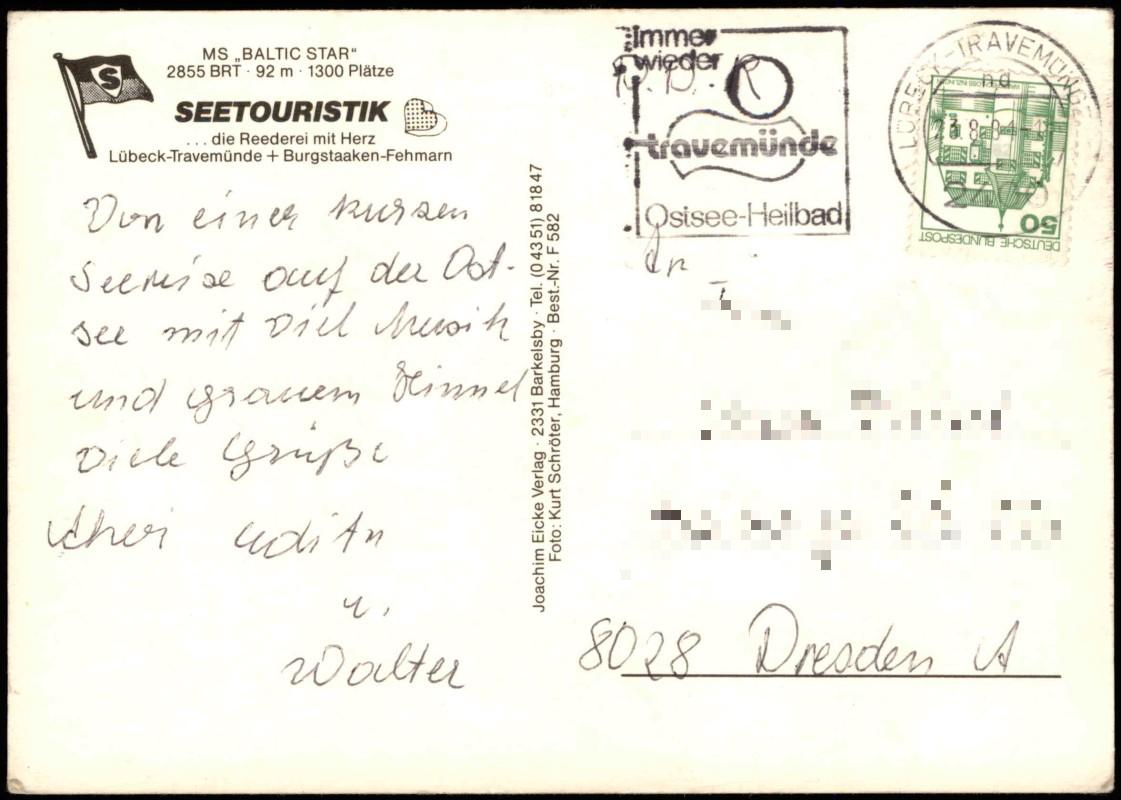 MS „BALTIC STAR“
2855 BRT · 92 m · 1300 Plätze
S
SEETOURISTIK
... die Reederei mit Herz
Lübeck-Travemünde + Burgstaaken-Fehmarn
Von einer kurzen
Seereise auf der Ost-
see mit viel Musik
und grauem Himmel
viele Grüße
Edith
u.
Walter
Joachim Eicke Verlag · 2331 Barkelsby · Tel. (0 43 51) 8 18 47
Foto: Kurt Schröter, Hamburg · Best.-Nr. F 582
immer
wieder
travemünde
Ostsee-Heilbad
LÜBECK-TRAVEMÜNDE
nd
50
DEUTSCHE BUNDESPOST
8028 Dresden A